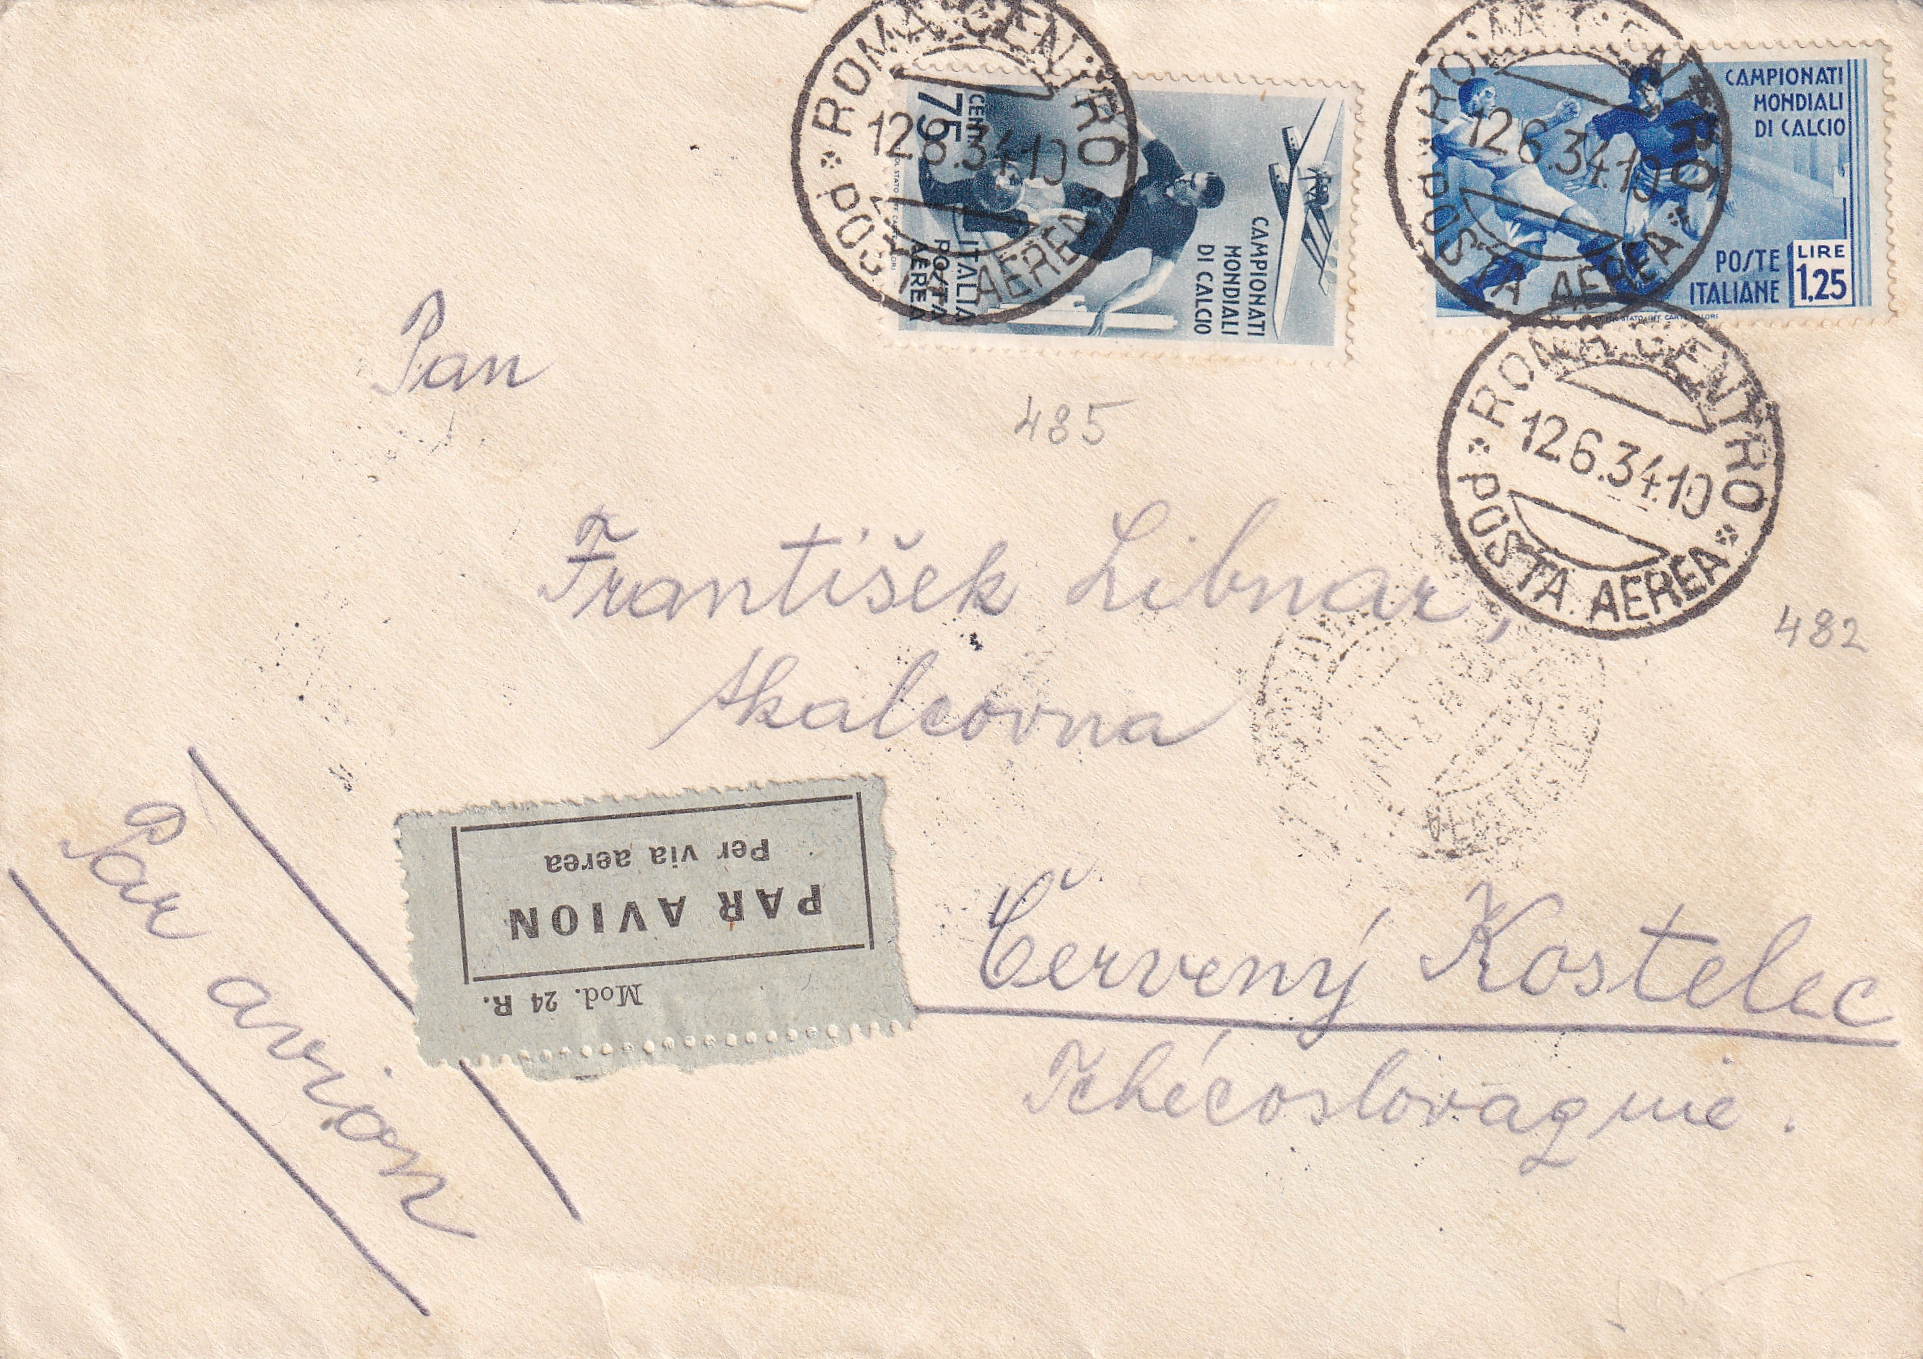 ROMA CENTRO
12.6.34.10
POSTA AEREA
CENT.
75
ITALIA
POSTA
AEREA
CAMPIONATI
MONDIALI
DI CALCIO
ROMA CENTRO
12.6.34.10
POSTA AEREA
CAMPIONATI
MONDIALI
DI CALCIO
POSTE
ITALIANE
LIRE
1,25
ROMA CENTRO
12.6.34.10
POSTA AEREA
Pan
485
František Libnar,
482
skalcovna
Par avion
Mod. 24 R.
PAR AVION
Per via aerea
Červený Kostelec
Tchécoslovaquie.